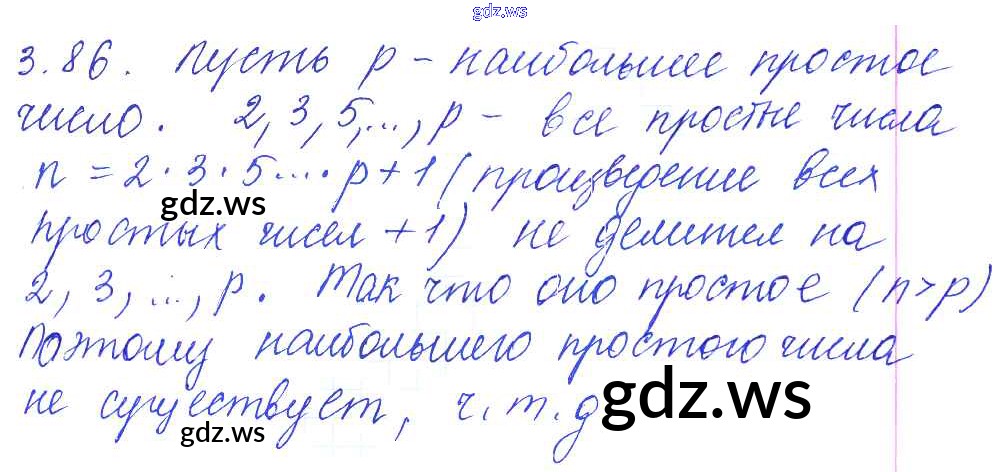 gdz.ws
3.86. Пусть p - наибольшее простое
число. 2, 3, 5, ..., p - все простые числа
n = 2 · 3 · 5 ... · p + 1 (произведение всех
gdz.ws
простых чисел + 1) не делится на
2, 3, ..., p. Так что оно простое (n > p)
Поэтому наибольшего простого числа
не существует, ч. т. д
gdz.ws
gdz.ws